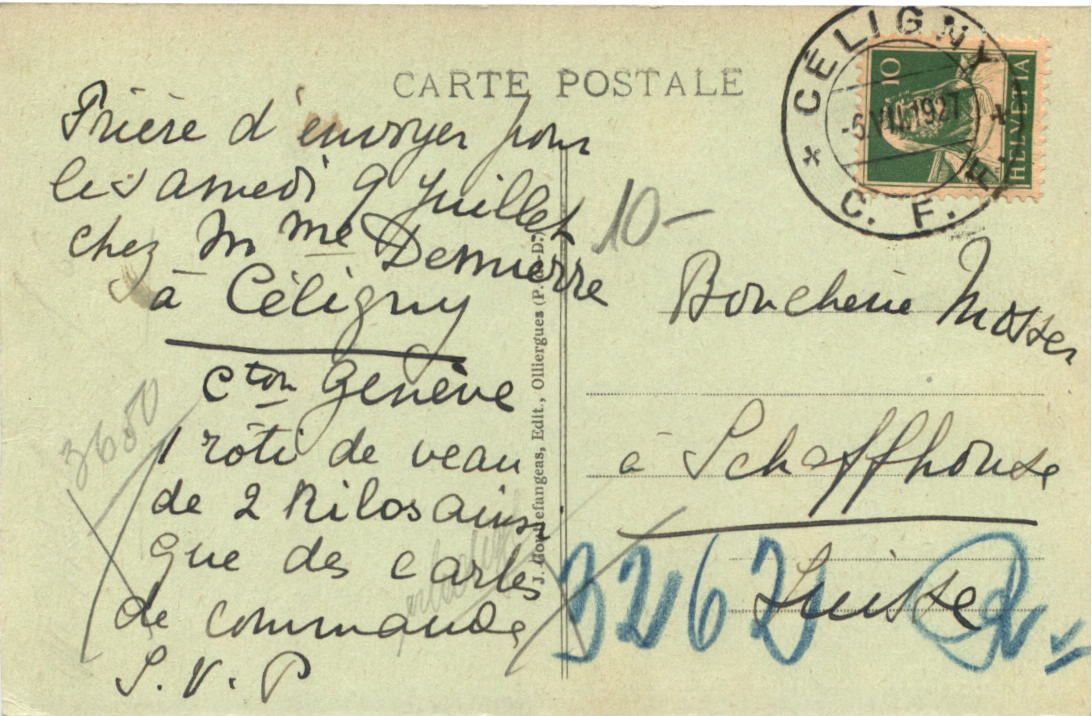 CARTE POSTALE
Prière d'envoyer pour
le samedi 9 Juillet
chez Mme Demierre
à Céligny
Cton Genève
1 rôti de veau
de 2 Kilos ainsi
que des cartes
de commande
S. V. P
3650
10-
CÉLIGNY
-5.VII.1927
C. F. F.
10
HELVETIA
J. Gouttefangeas, Edit., Olliergues (P.-de-D.)
Boucherie Mosser
à Schaffhouse
Suisse
3262